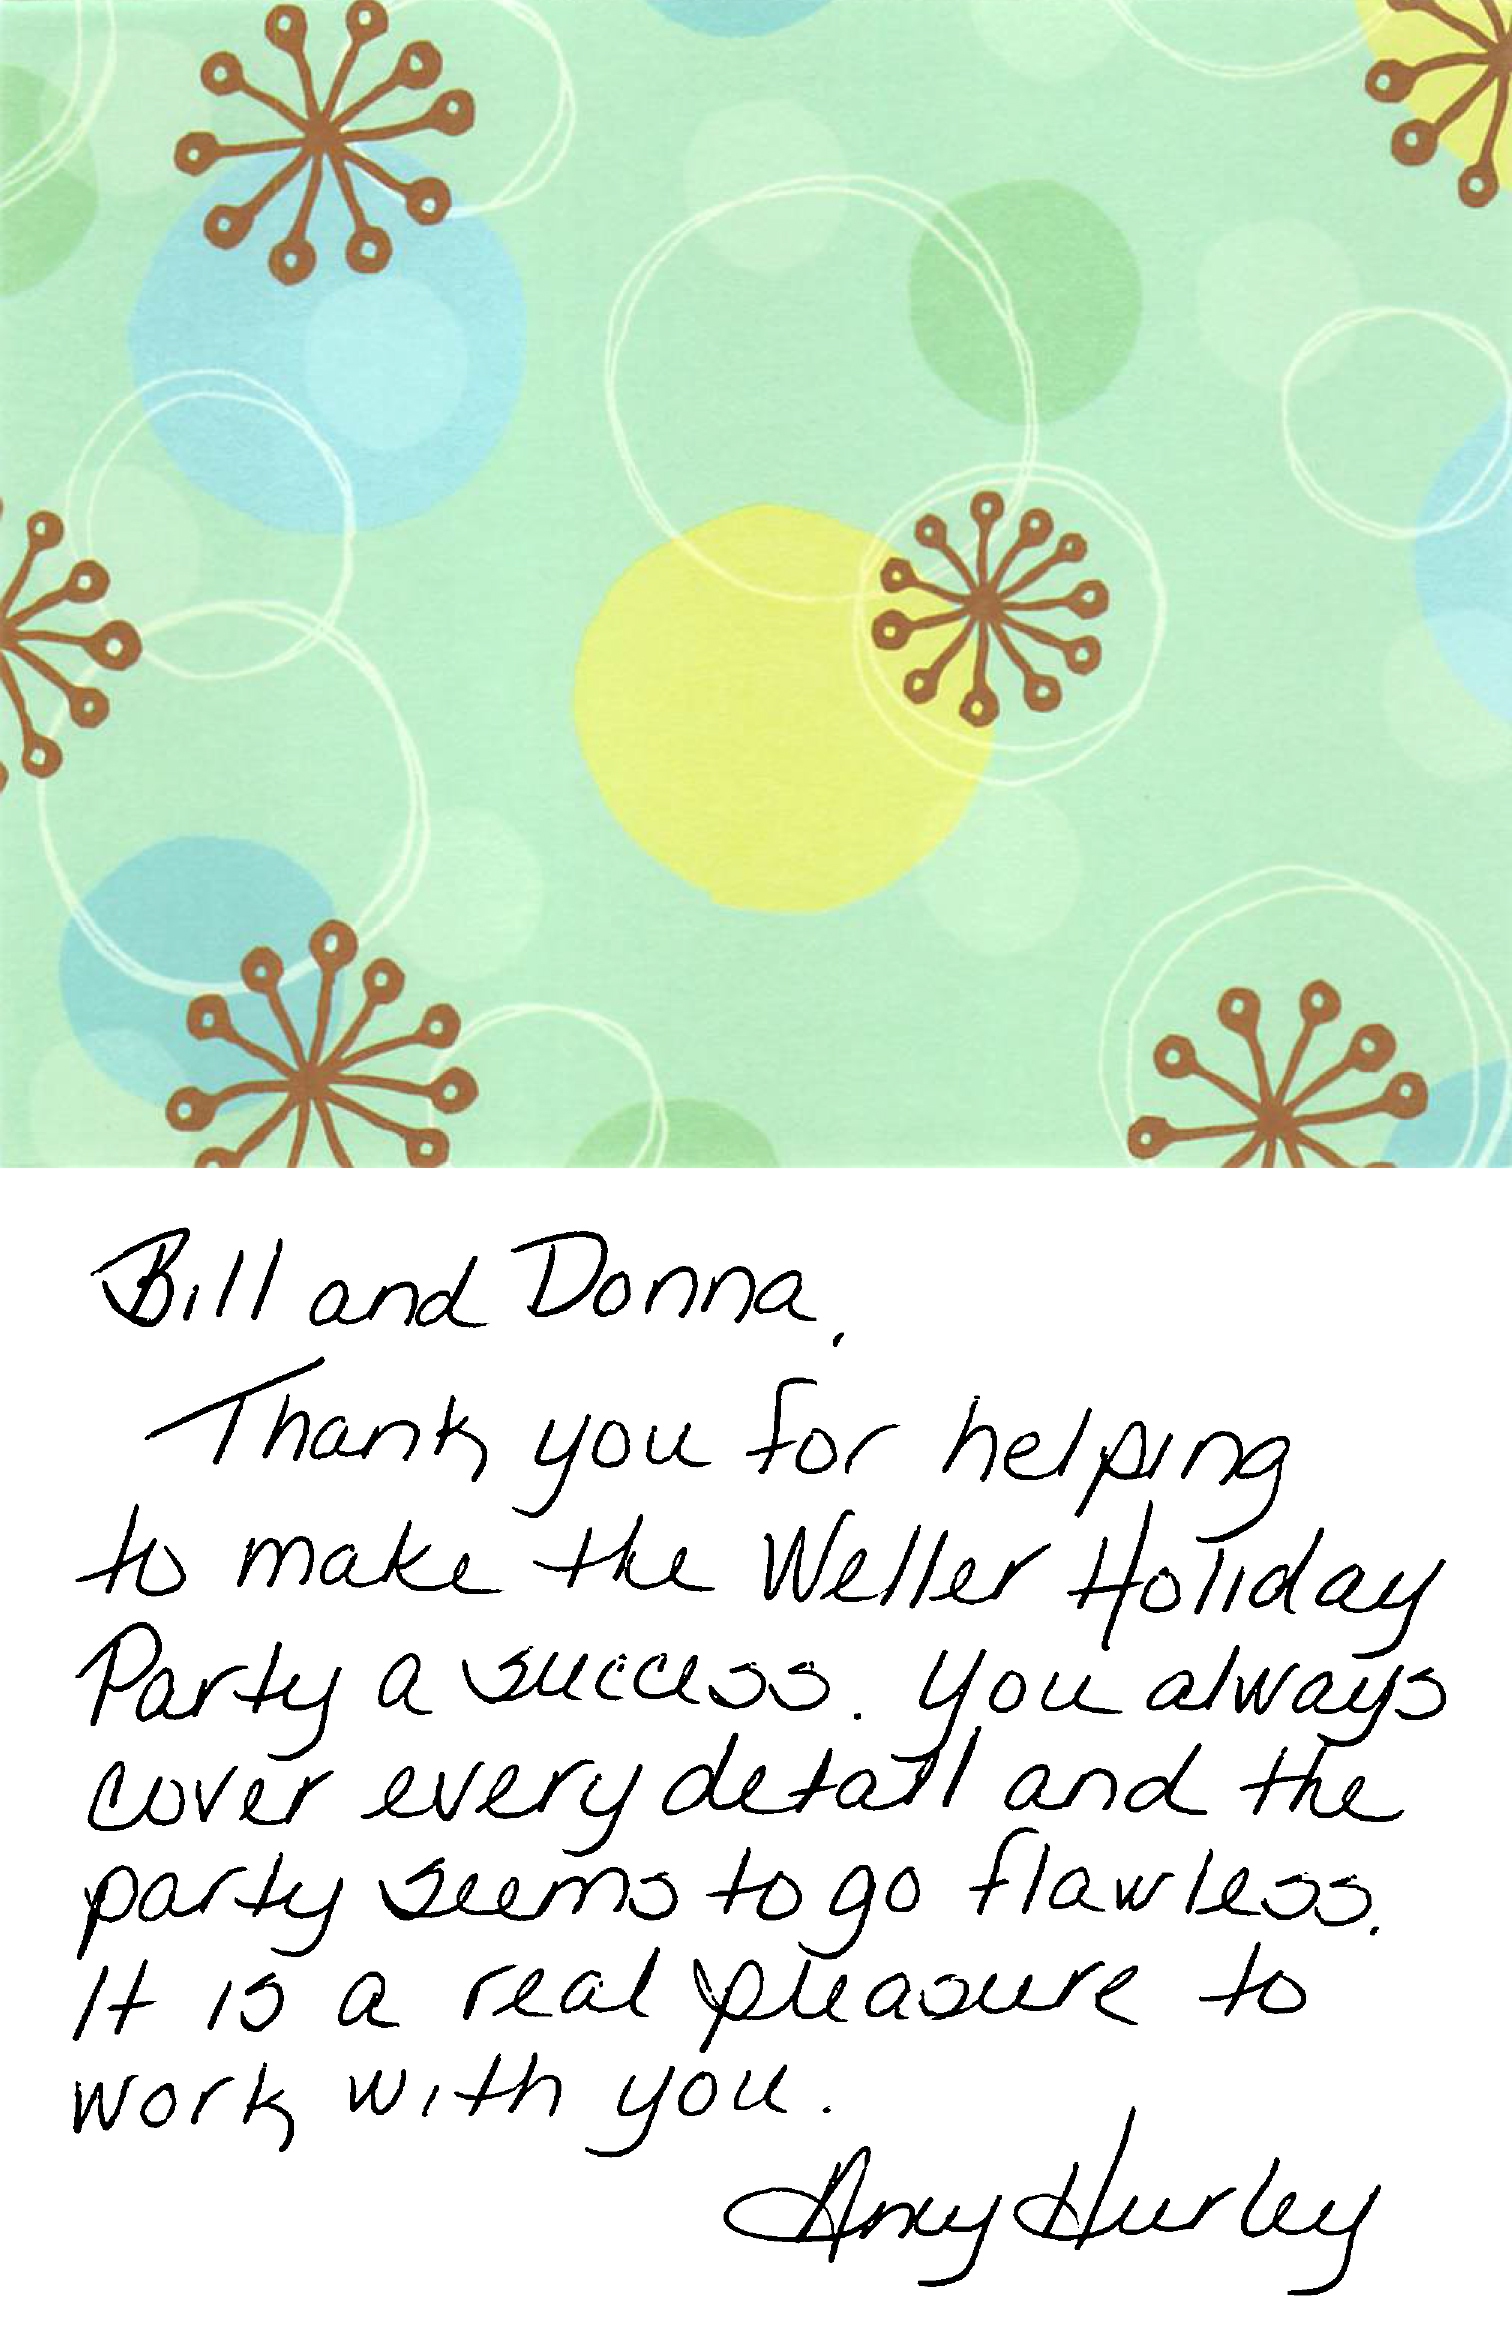 Bill and Donna,
Thank you for helping
to make the Weller Holiday
Party a success. You always
cover every detail and the
party seems to go flawless.
It is a real pleasure to
work with you.
Amy Hurley